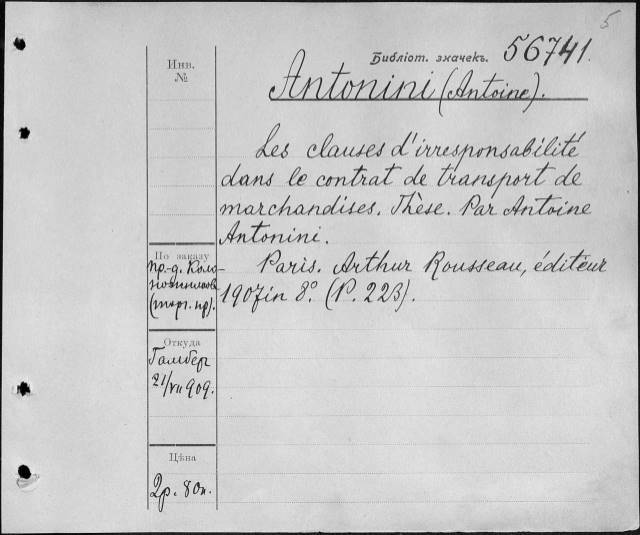 5
Библіот. значекъ. 56741.
Antonini (Antoine).
Les clauses d'irresponsabilité
dans le contrat de transport de
marchandises. Thèse. Par Antoine
Antonini.
Paris. Arthur Rousseau, éditeur
1907 in 8º. (P. 223).
Инв.
№
По заказу
пр.-д.
(торг. пр.).
Откуда
Гамбер
21/VII 909.
Цѣна
2р. 80к.